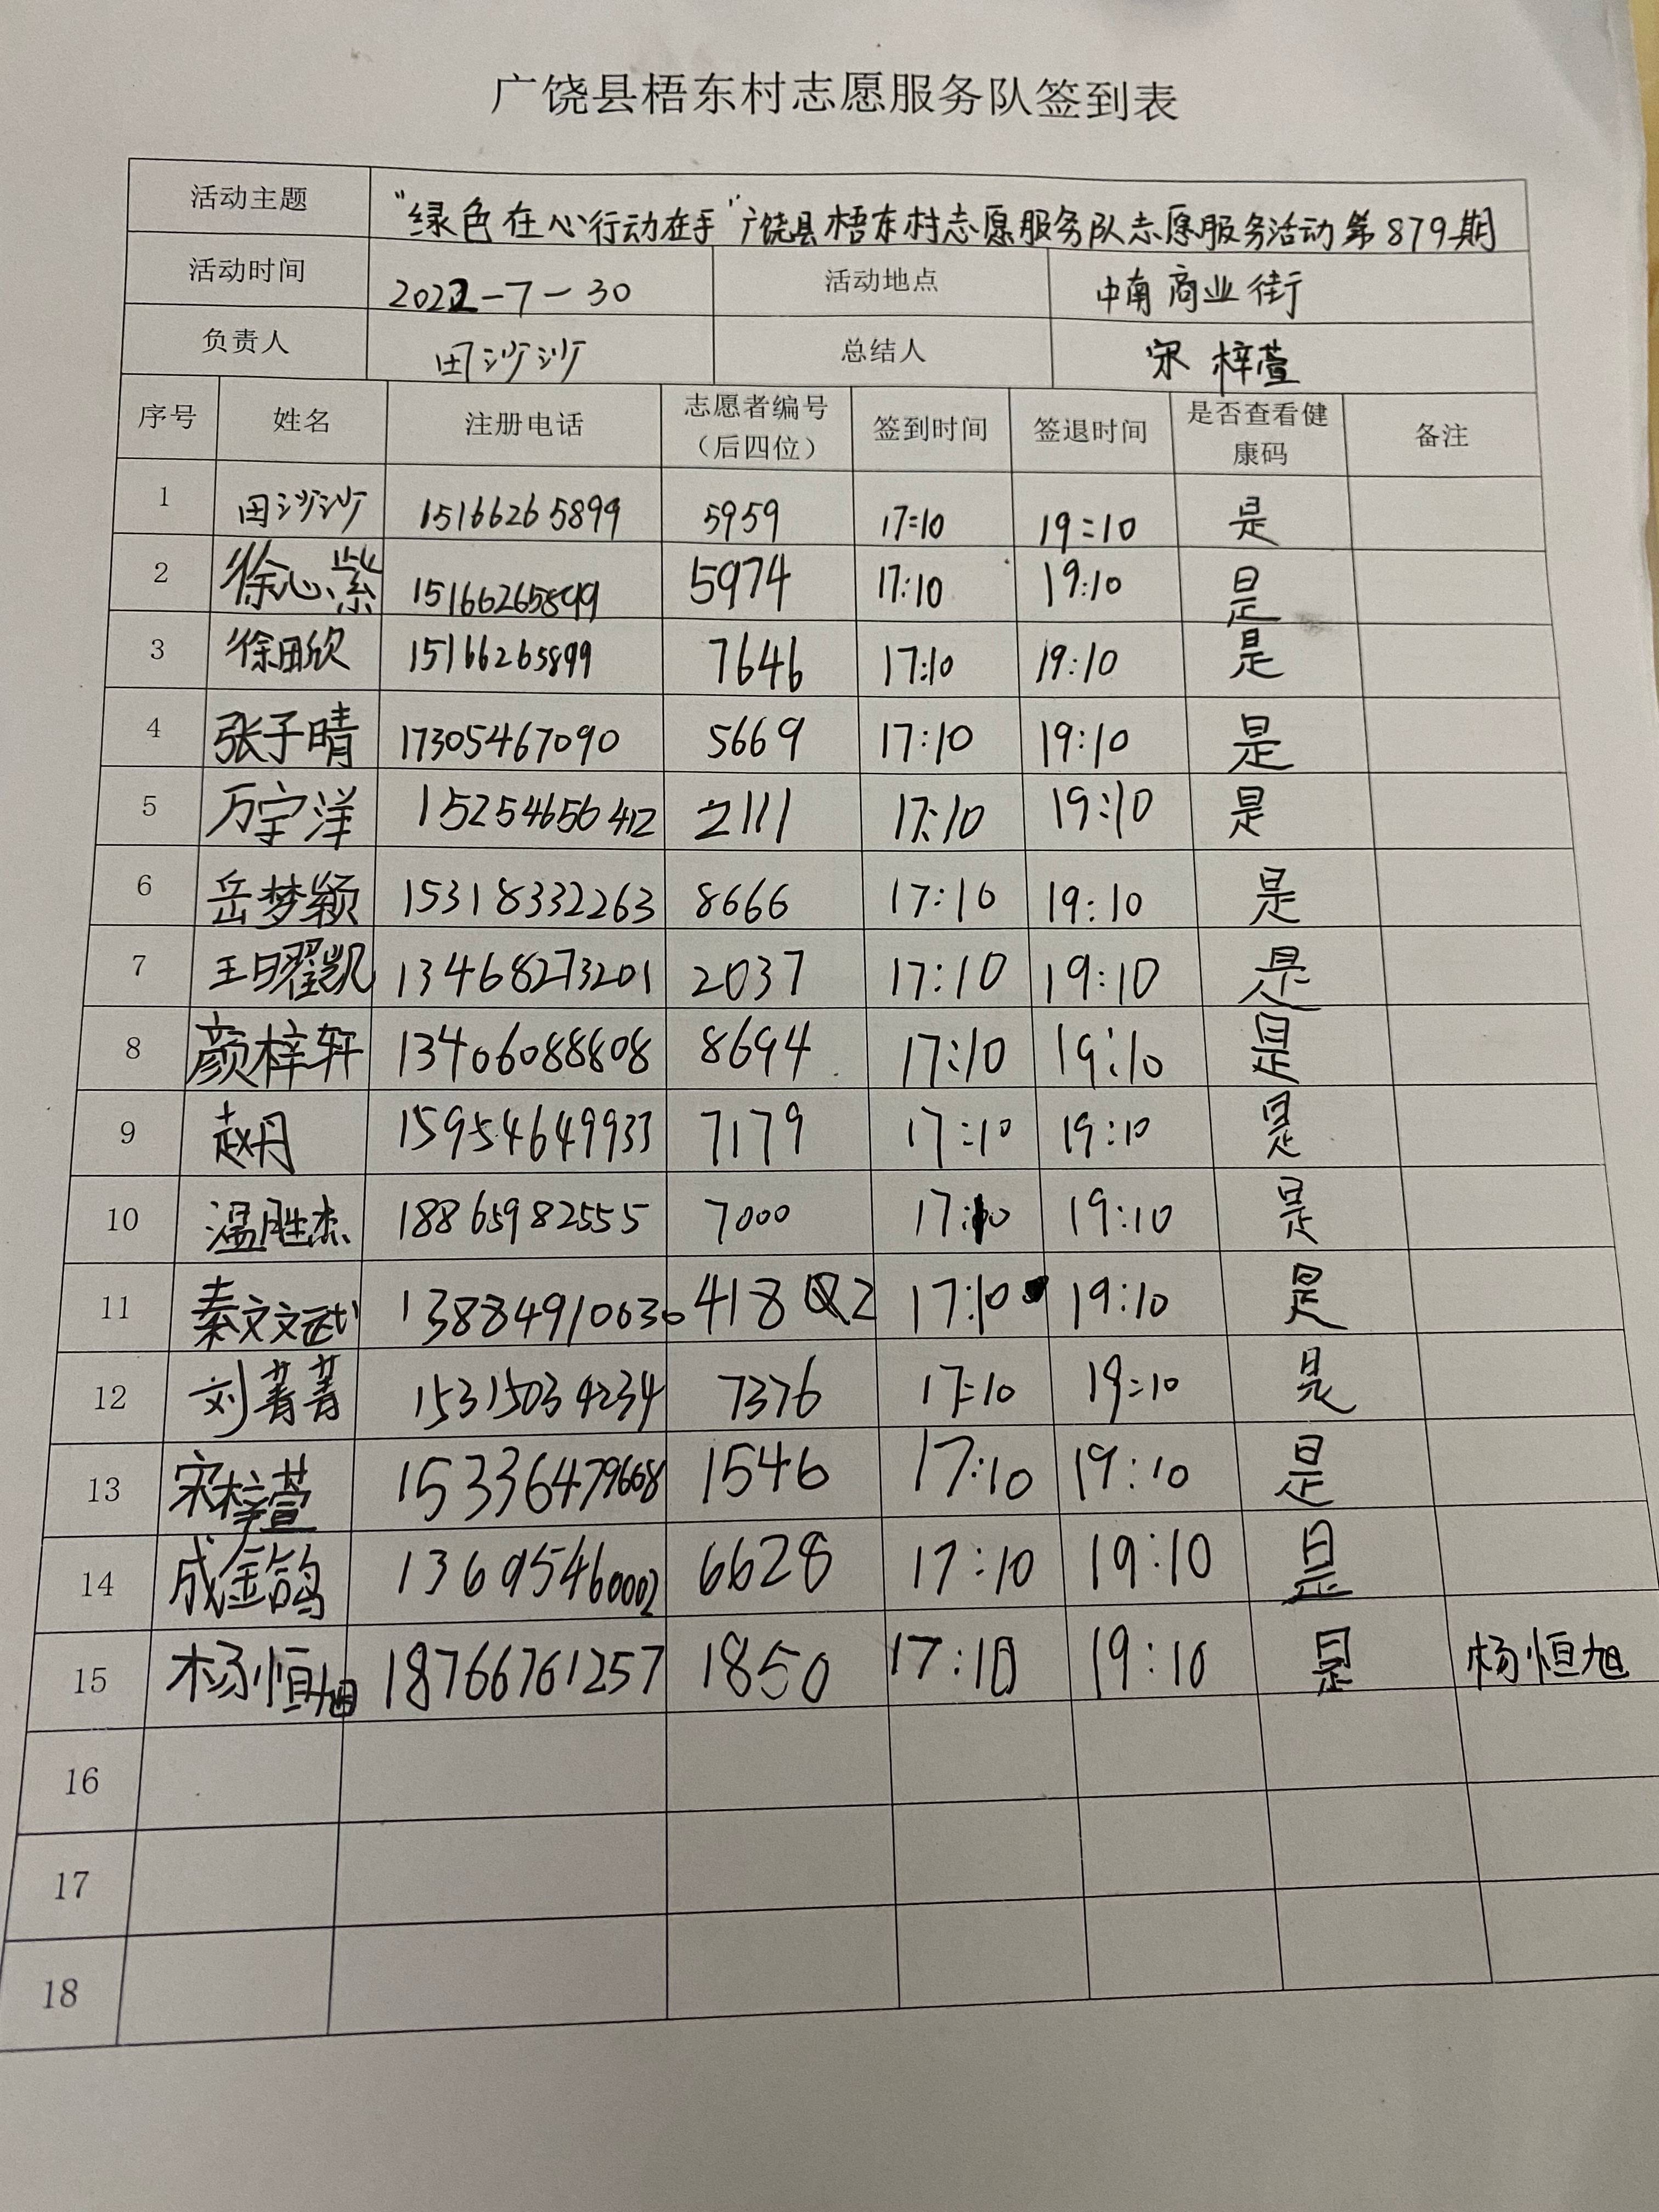 广饶县梧东村志愿服务队签到表
活动主题 “绿色在心行动在手”广饶县梧东村志愿服务队志愿服务活动第879期
活动时间 2022-7-30 活动地点 中南商业街
负责人 田沙沙 总结人 宋梓萱
序号 姓名 注册电话 志愿者编号（后四位） 签到时间 签退时间 是否查看健康码 备注
1 田沙沙 15166265899 5959 17:10 19:10 是
2 徐心紫 15166265899 5974 17:10 19:10 是
3 徐田欣 15166265899 7646 17:10 19:10 是
4 张子晴 17305467090 5669 17:10 19:10 是
5 万宇洋 2111 17:10 19:10 是
6 岳梦颖 15318332263 8666 17:10 19:10 是
7 王曜凯 13468273201 2037 17:10 19:10 是
8 颜梓轩 13406088808 8694 17:10 19:10 是
9 赵丹 15954649933 7179 17:10 19:10 是
10 温胜杰 18865982555 7000 17:10 19:10 是
11 秦文斌 13884910630 17:10 19:10 是
12 刘菁菁 15315034234 7376 17:10 19:10 是
13 宋梓萱 15336479668 1546 17:10 19:10 是
14 成金鸽 13695460002 6628 17:10 19:10 是
15 杨恒旭 18766761257 1850 17:10 19:10 是 杨恒旭
16
17
18